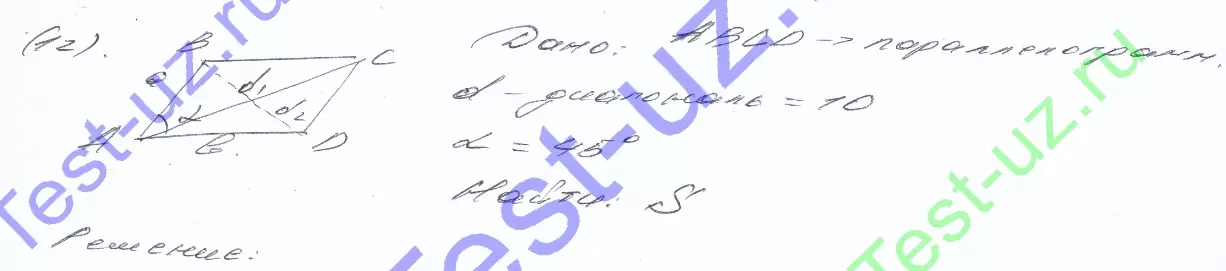 (12).
B
C
a
d₁
d₂
α
A
b.
D
Дано: ABCD → параллелограмм.
d - диагональ = 10
α = 45°
Найти: S
Решение:
Test-uz.ru
Test-uz.ru
Test-uz.ru